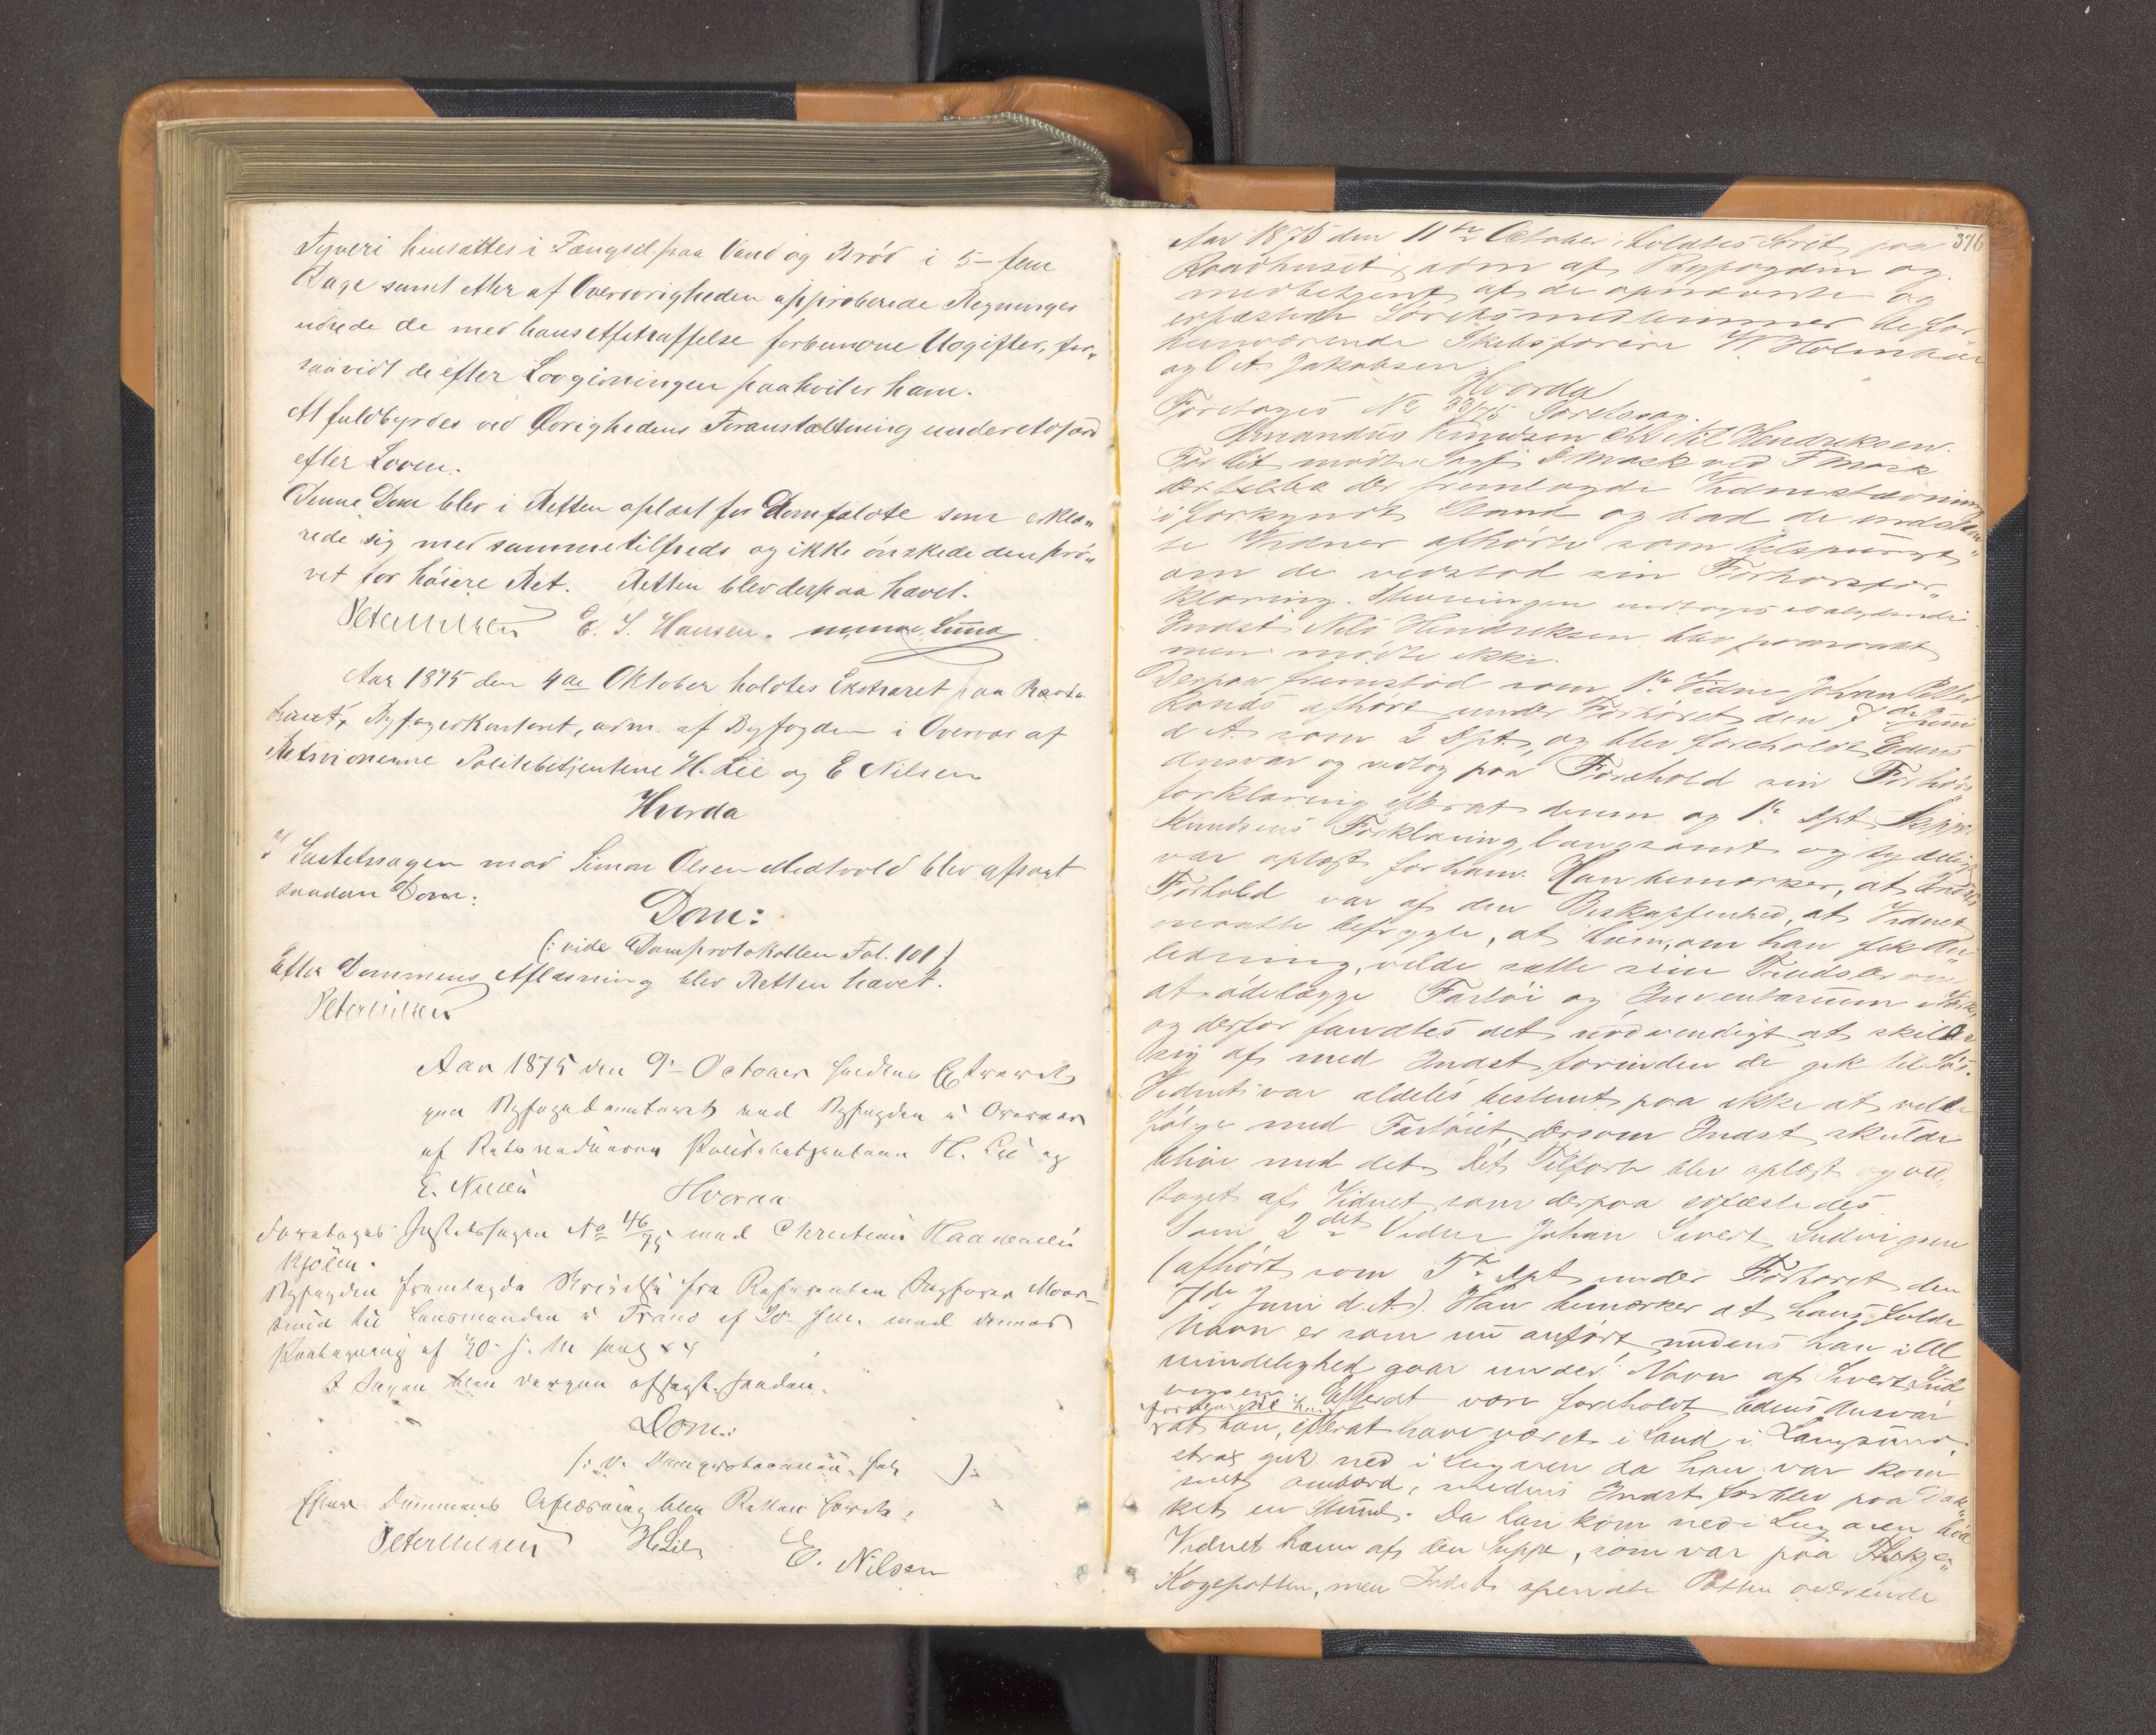 Tyveri hensættes i Fængsel paa Vand og Brød i 5- fem
Dage samt efter af Overøvrigheden approberede Regninger
udrede de med hans Afstraffelse forbundne Udgifter, for„
saavidt de efter Lovgivningen paahviler ham.
At fuldbyrdes ved Øvrighedens Foranstaltning under Adfærd
efter Loven.
Denne Dom blev i Retten oplæst for Domfældte som erklæ„
rede sig med samme tilfreds og ikke ønskede den prø„
vet for høiere Ret. Retten blev derpaa hævet.
Peter Nilsen E. S. Hansen.
Aar 1875 den 4de Oktober holdtes Ekstraret paa Raad„
huset, Byfogedkontoret, adm. af Byfogden i Overvær af
Retsvidnerne Politibetjentene H. Lie og E Nilsen
Hvorda
I Justitssagen mod Simon Olsen blev afsagt
saadan Dom:
Dom:
(: vide Domsprotokollen Fol. 101 :)
Efter Dommens Aflæsning blev Retten hævet.
Peter Nilsen
Aar 1875 den 9de October holdtes Extraret
paa Byfogedkontoret ved Byfogden i Overvær
af Retsvidnerne Politibetjentene H. Lie og
E. Nilsen Hvorda
Foretoges Justitssagen No 46/75 mod Christian
Kjølen.
Byfogden fremlagde Skrivelse fra Sagfører
til Lensmanden i Tranø af med dennes
Paategning af
I Sagen blev derpaa afsagt saadan.
Dom:
(: v. Domsprotocollen Fol. :)
Efter Dommens Aflæsning blev Retten hævet.
Peter Nilsen H. Lie E. Nilsen
376
Aar 1875 den 11te October holdtes Søret paa
Raadhuset, adm af Byfogden og
medbetjent af de opnævnte og
edfæstede Søretsmedlemmer de for
Skibsførere W. Holmboe
og O A Jakobsen
Hvorda
Foretoges No 33/75 Søretssag.
Knudsen ctr Nils Hendriksen.
For Cit. mødte Sagf. D Mack ved F Mack
der fremlagde Vidnestævning
i forkyndt Stand og bad de indstævn„
te Vidner afhørte som tilspurgt
om de vedstod sin Forhørsfor„
klaring. Stævningen indtages
Indst. Nils Hendriksen blev paaraabt
men mødte ikke.
Derpaa fremstod som 1ste Vidne Johan Petter
afhørt under Forhøret den 7de Juni
d. A. som 2 Dpt. og blev foreholdt Edens
Ansvar og vedtog paa Forehold sin Forhørs„
forklaring efterat denne og 1ste Dpt. Skipper
Knudsens Forklaring langsomt og tydeligt
var oplæst for ham. Han bemærker, at Indst.
Forhold var af den Beskaffenhed, at Vidnet
maatte befrygte, at han, om han fik An„
ledning, vilde sætte sine Trudsler om
at ødelægge Fartøi og Inventarium i Værk,
og derfor fandtes det nødvendigt at skille
sig af med Indst. forinden de gik til Søs.
Vidnet var aldeles bestemt paa ikke at ville
følge med Fartøiet, dersom Indst. skulde
blive med det. Det Tilførte blev oplæst og ved„
taget af Vidnet som derpaa edfæstedes.
Som 2det Vidne Johan Sivert Ludvigsen
(afhørt som 5te Dpt under Forhøret den
7de Juni d. A.). Han bemærker at hans fulde
Navn er som nu anført medens han i Al
mindelighed gaar under Navn af Sivert Lud
vigsen. Efterat være foreholdt Edens Ansvar
forklarede han
at han, efterat have været i Land i Langsund,
strax gik ned i Lugaren da han var kom
met ombord, medens Indst. forblev paa Dæk„
ket en Stund. Da han kom ned i Lugaren bød
Vidnet ham af den Suppe, som var paa
Kogepotten, men Indst. spændte Potten overende